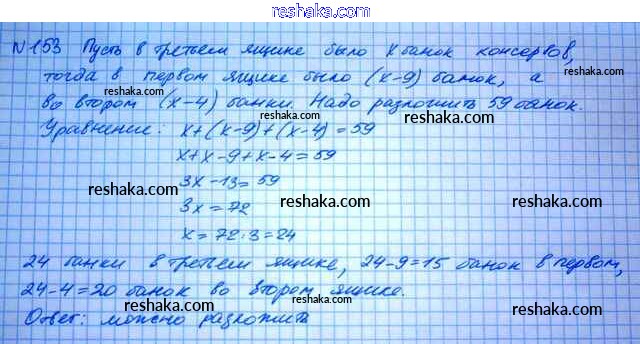 reshaka.com
N 153 Пусть в третьем ящике было x банок консервов,
reshaka.com
тогда в первом ящике было (x-9) банок, а
во втором (x-4) банки. Надо разложить 59 банок.
reshaka.com reshaka.com reshaka.com
Уравнение: x+(x-9)+(x-4)=59
x+x-9+x-4=59
3x-13=59
reshaka.com reshaka.com reshaka.com
3x=72
x=72:3=24
reshaka.com
24 банки в третьем ящике, 24-9=15 банок в первом,
24-4=20 банок во втором ящике.
reshaka.com reshaka.com reshaka.com
Ответ: можно разложить
reshaka.com